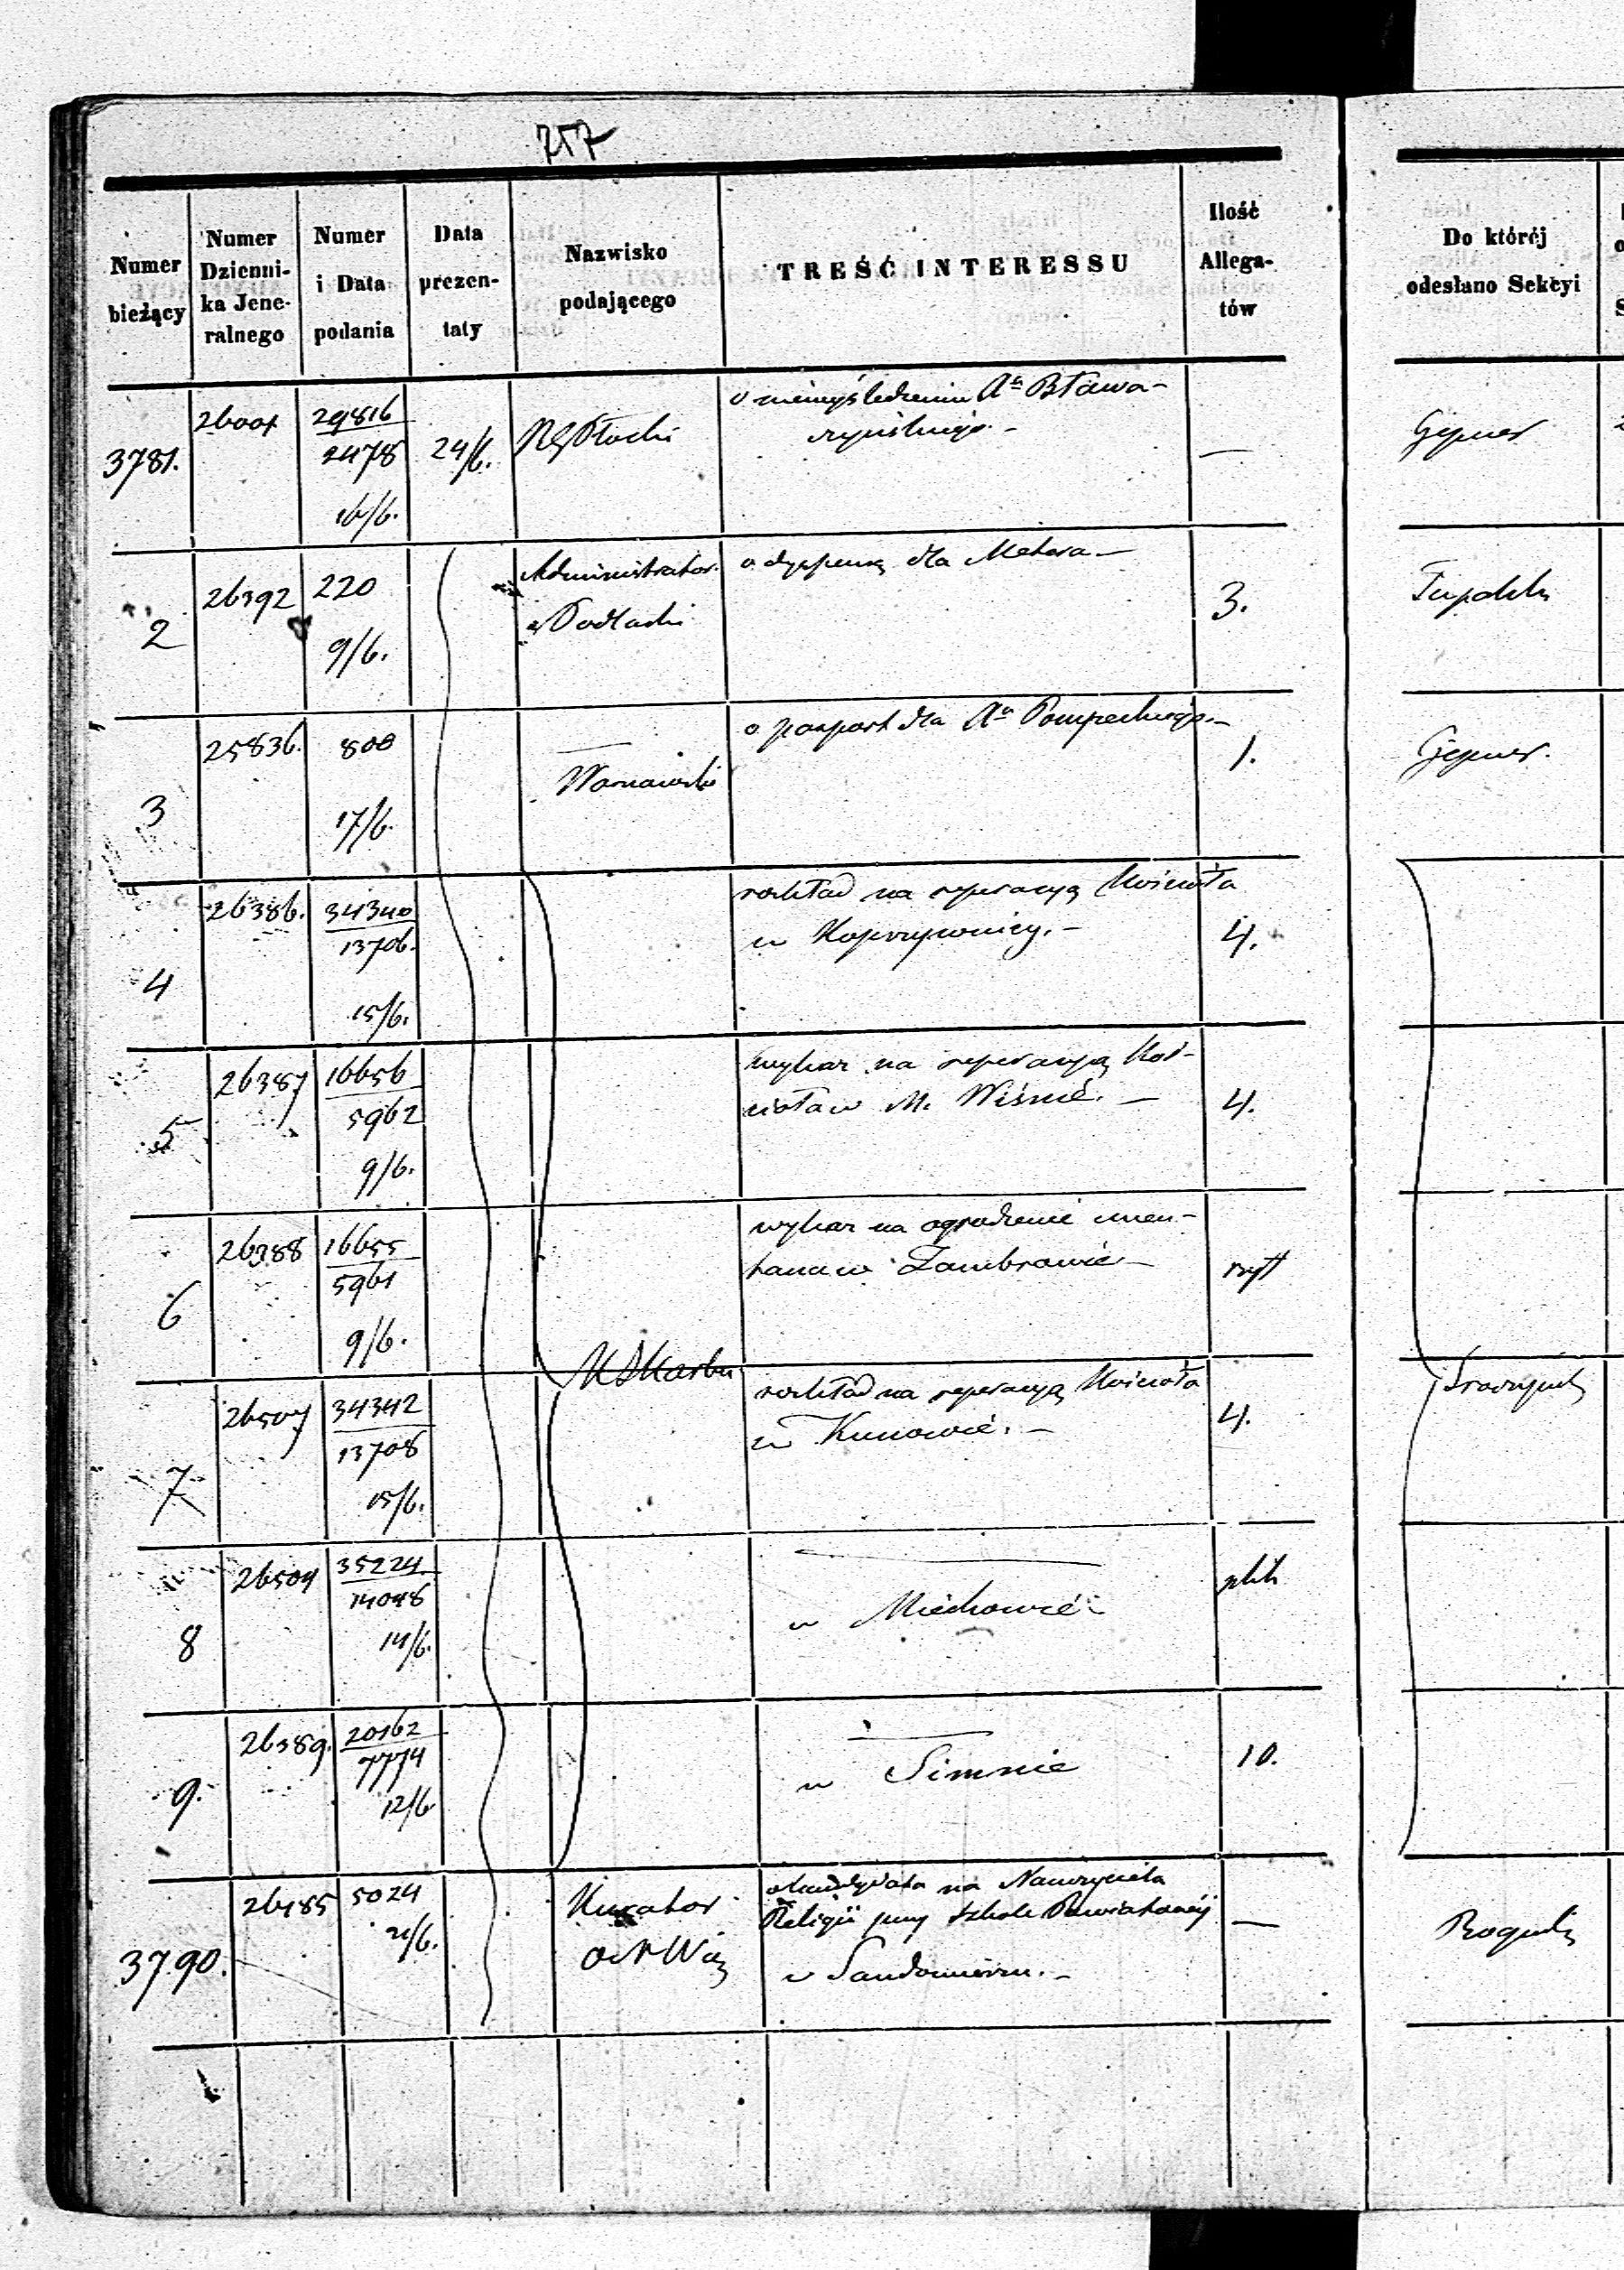 757
Numer bieżący
Numer Dzienni- ka Jene- ralnego
Numer i Data podania
Data prezen- taty
Nazwisko podającego
TREŚĆ INTERESSU
Ilość Allega- tów
Do któréj odesłano Sekcyi
3781. 29816 2478 16/6. 24/6. RGPłocki o niewyśledzeniu Xa
—
2 26392 220 9/6. Administrator Podlaski o dyspensę dla 3.
3 25836. 800 17/6. — Warszawski o paszport dla Xa 1.
4 26386. 34340 13706. 15/6. rozkład na reperacyą Kościoła
w Koprzywnicy. — 4.
5 26387 16656 5962 9/6. wykaz na reperacyą Koś-
cioła w M. Wiźnie. — 4.
6 26388 16655 5961 9/6. wykaz na ogrodzenie cmen-
tarza w Zambrowie —
KSkarbu
7 26507 34342 13708 15/6. rozkład na reperacyą Kościoła
w Kunowie. — 4.
8 26504 35224 14048 14/6. —
w Miechowie —
9. 26389. 20162 7774 12/6. —
w Simnie 10.
3790. 26485 5024 21/6. Kurator o kandydata na Nauczyciela
Religii przy Szkole Powiatowéj —
w Sandomierzu. —